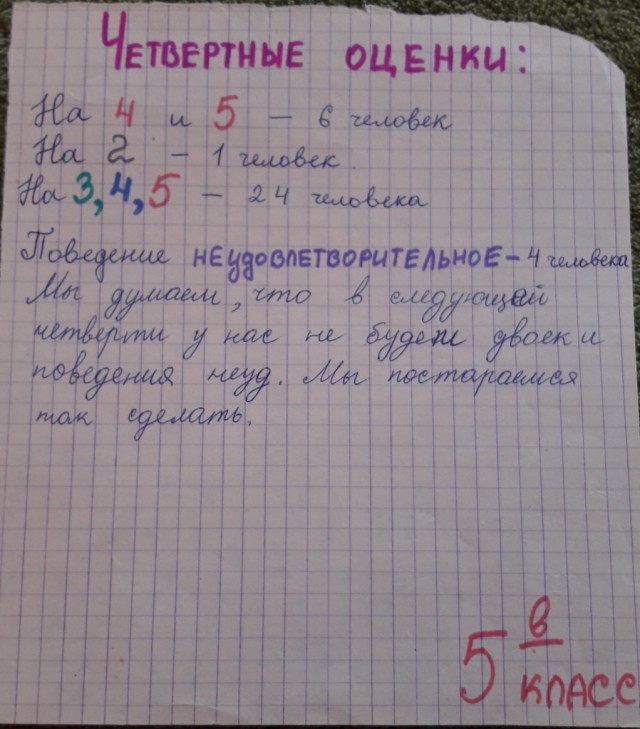 Четвертные оценки:
На 4 и 5 – 6 человек
На 2 – 1 человек.
На 3, 4, 5 – 24 человека
Поведение неудовлетворительное – 4 человека
Мы думаем, что в следующей
четверти у нас не будет двоек и
поведения неуд. Мы постараемся
так сделать.
5 в
класс